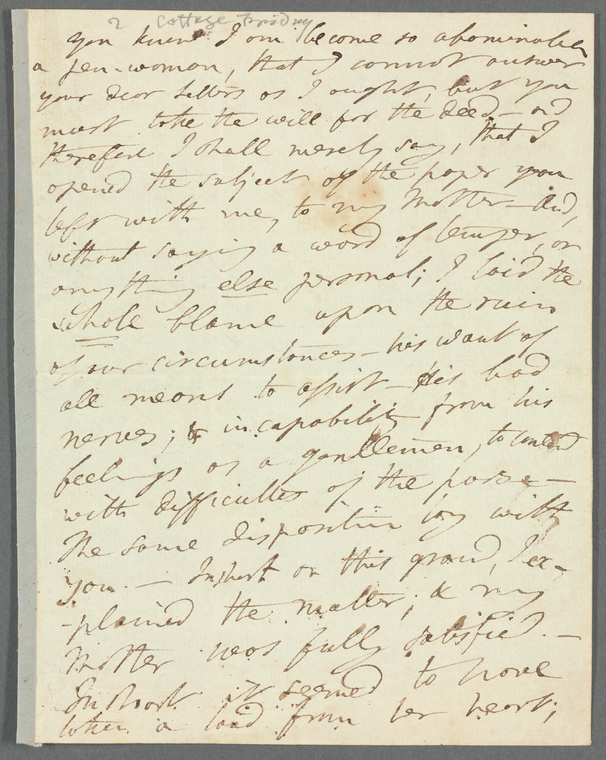 2 Cottage Friday
you know I am become so abominable
a pen-woman, that I cannot answer
your dear letters as I ought, but you
must take the will for the deed - and
therefore I shall merely say, that I
opened the subject of the paper you
left with me, to my Mother - And,
without saying a word of temper, or
any thing else personal; I laid the
whole blame upon the ruin
of our circumstances - his want of
all means to assist - His bad
nerves; & incapability from his
feelings as a gentleman, to contend
with difficulties of the purse -
The same disposition with
you. - In short on this ground, I ex-
-plained the matter, & my
Mother was fully satisfied. -
In short it seemed to have
taken a load from her heart;